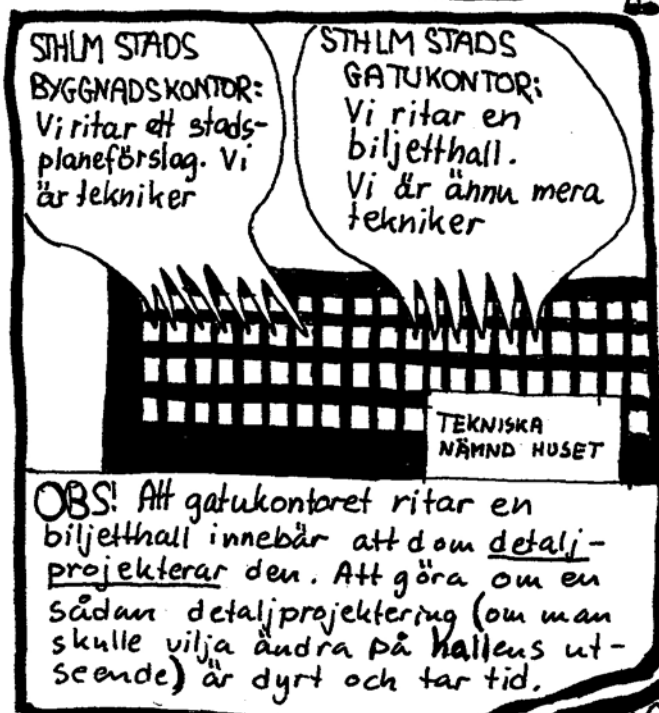 STHLM STADS
BYGGNADSKONTOR:
Vi ritar ett stads-
planeförslag. Vi
är tekniker
STHLM STADS
GATUKONTOR:
Vi ritar en
biljetthall.
Vi är ännu mera
tekniker
TEKNISKA
NÄMND HUSET
OBS! Att gatukontoret ritar en
biljetthall innebär att dom detalj-
projekterar den. Att göra om en
sådan detaljprojektering (om man
skulle vilja ändra på hallens ut-
seende) är dyrt och tar tid.